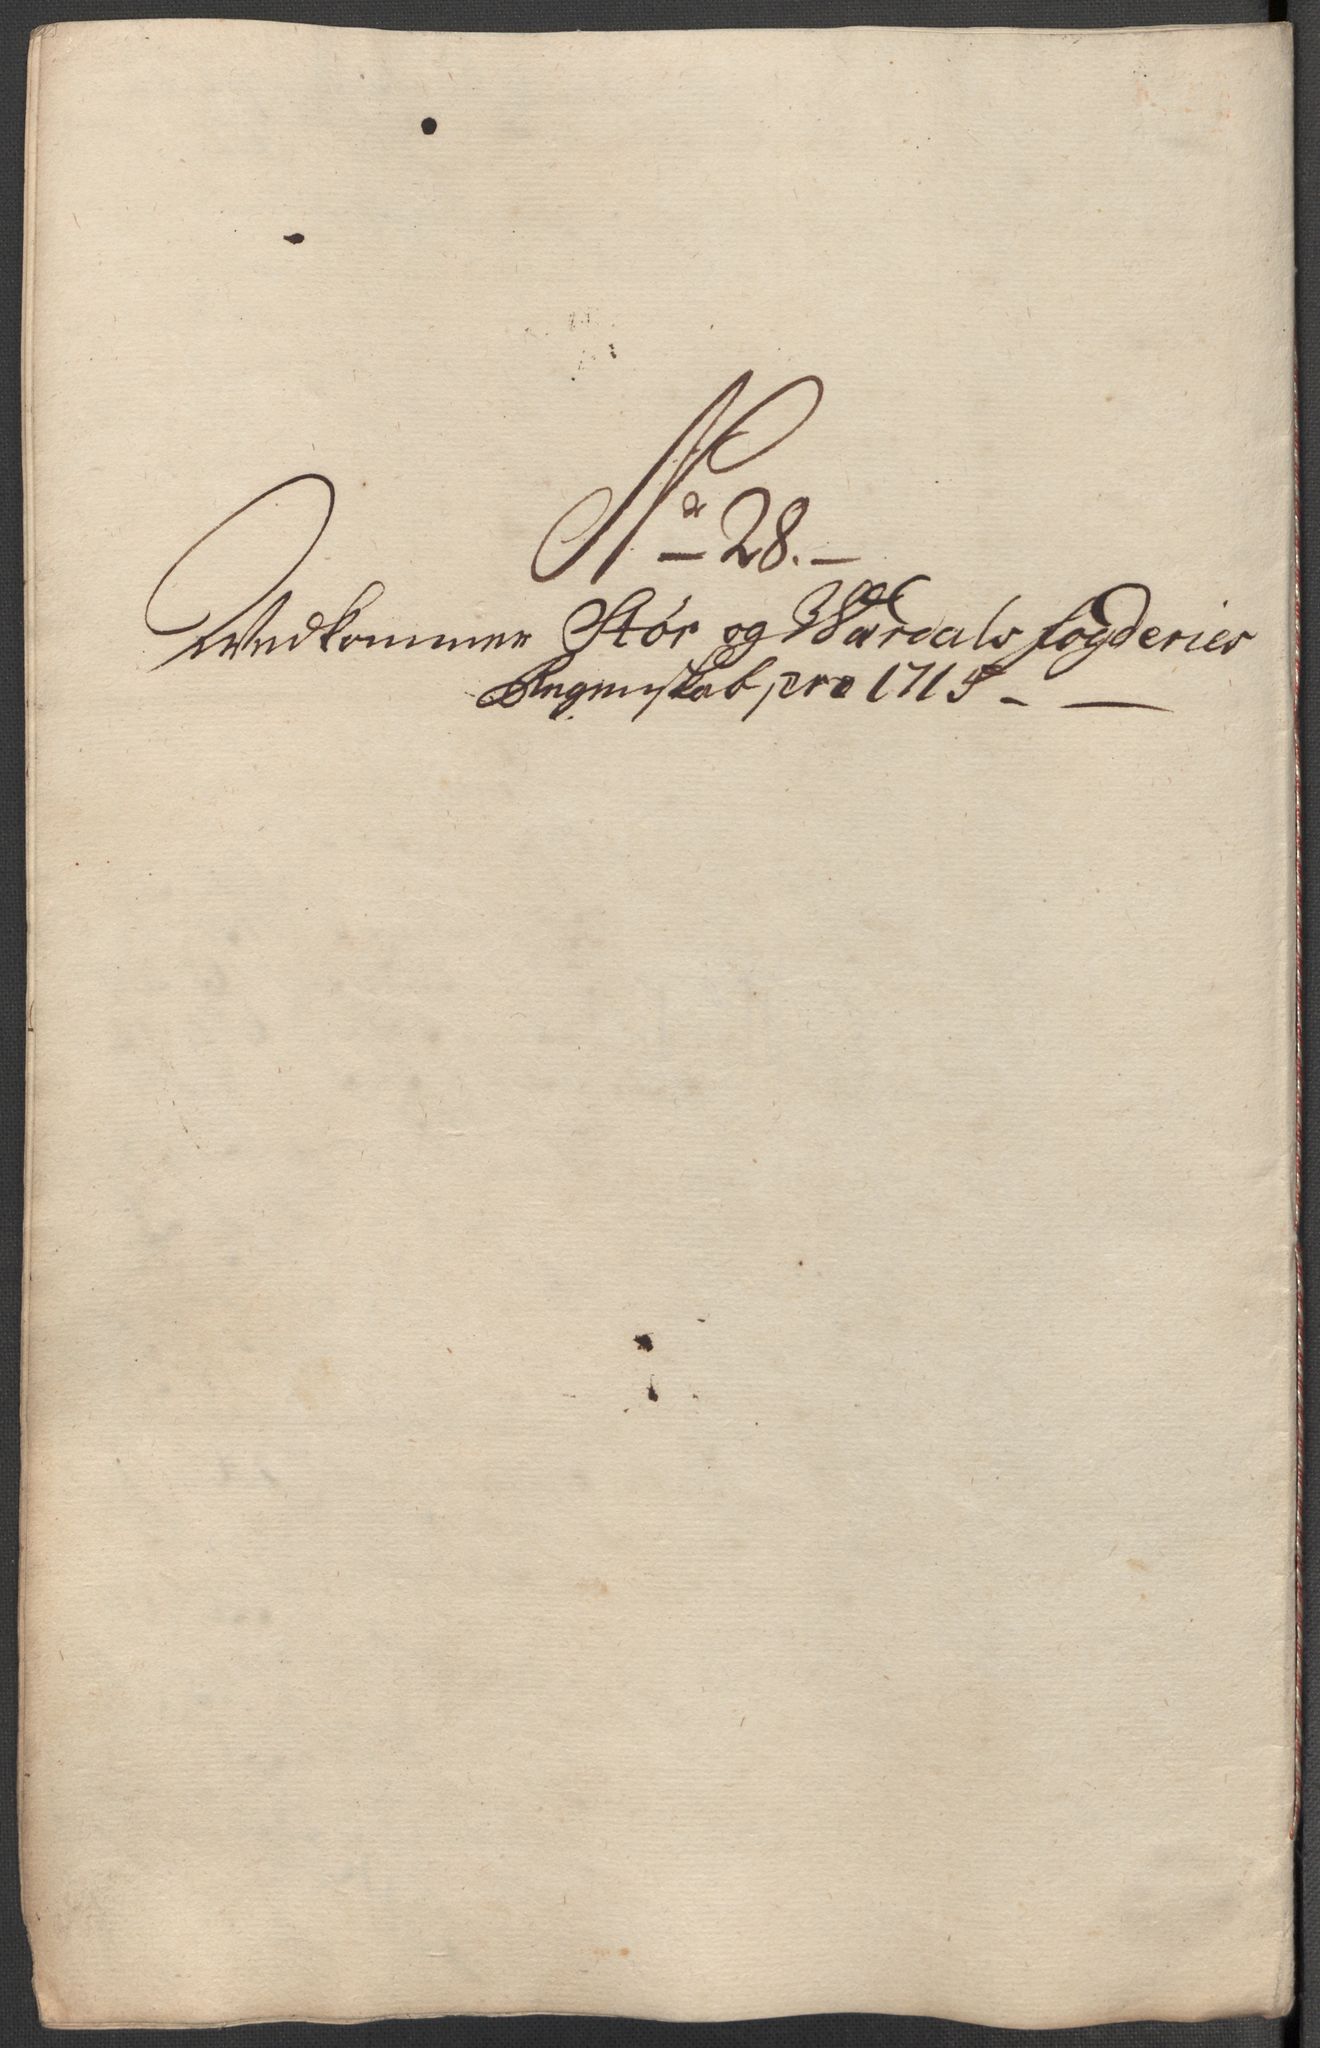 No 28.
Vedkommer Stør og Værdals fogderies
Regenskab pro 1715